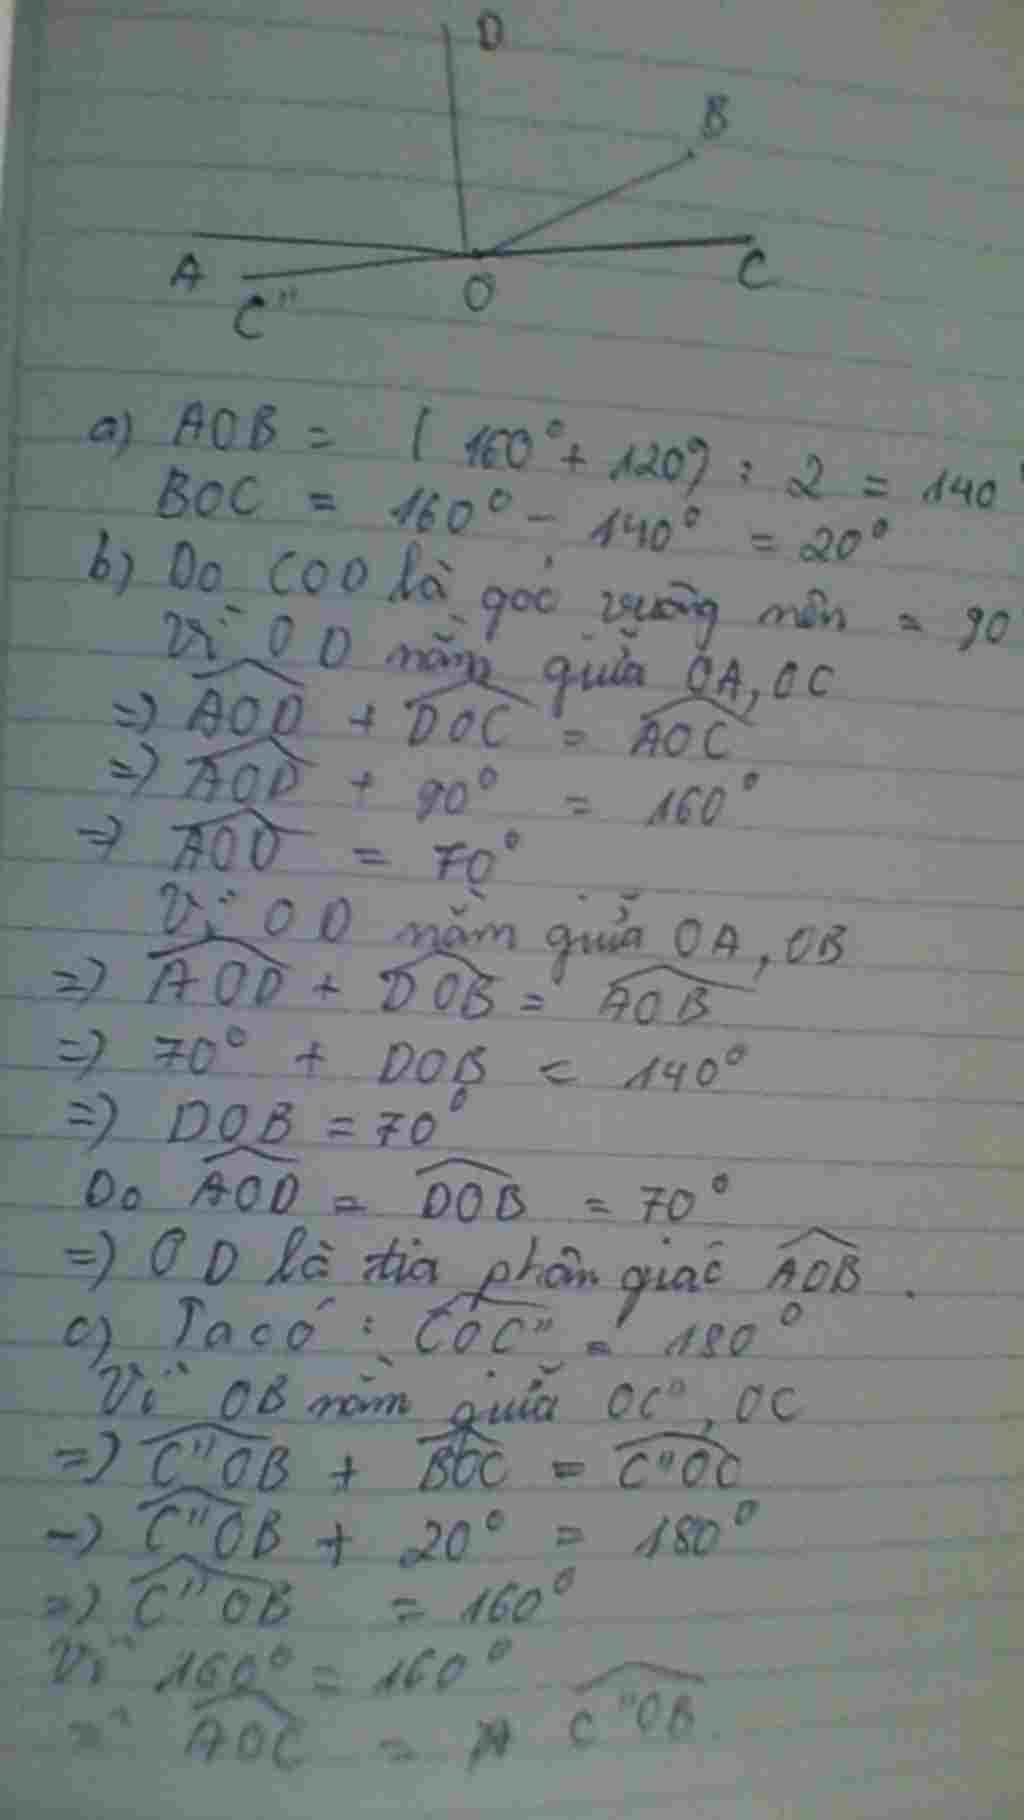 D
B
A
C"
O
C
a) AOB = (160° + 120°) : 2 = 140°
BOC = 160° - 140° = 20°
b) Do COD là góc vuông nên = 90
Vì OD nằm giữa OA, OC
=> AOD + DOC = AOC
=> AOD + 90° = 160°
=> AOD = 70°
Vì OD nằm giữa OA, OB
=> AOD + DOB = AOB
=> 70° + DOB = 140°
=> DOB = 70°
Do AOD = DOB = 70°
=> OD là tia phân giác AOB.
c) Ta có : COC" = 180°
Vì OB nằm giữa OC", OC
=> C"OB + BOC = C"OC
=> C"OB + 20° = 180°
=> C"OB = 160°
Vì 160° = 160°
=> AOC = C"OB